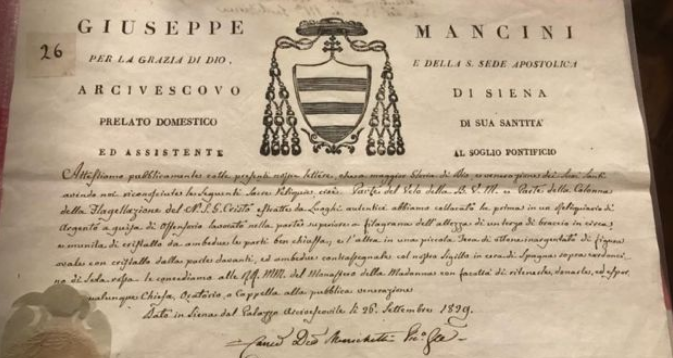 GIUSEPPE MANCINI
26
PER LA GRAZIA DI DIO, E DELLA S. SEDE APOSTOLICA
ARCIVESCOVO DI SIENA
PRELATO DOMESTICO DI SUA SANTITA'
ED ASSISTENTE AL SOGLIO PONTIFICIO
Attestiamo pubblicamente colle presenti nostre lettere, che a maggior Gloria di Dio, e venerazione dei Suoi Santi
avendo noi riconosciute le seguenti Sacre Reliquie, cioè. Parte del Velo della B. V. M. e Parte della Colonna
della Flagellazione del N. S. G. Cristo estratte da Luoghi autentici abbiamo collocato la prima in un Reliquiario di
Argento a guisa di Ostensorio lavorato nella parte superiore a filagrana dell'altezza di un terzo di braccio in circa,
e munita di cristallo da ambedue le parti ben chiusa, e l'altra in una piccola Teca di ottone inargentato di figura
ovale con cristallo dalla parte davanti, ed ambedue contrassegnate col nostro Sigillo in cera di Spagna sopra cordonci-
no di Seta rossa le concediamo alle RR. MM. del Monastero della Madonna con facoltà di ritenerle, donarle, ed espor-
qualunque Chiesa, Oratorio, o Cappella alla pubblica venerazione
Dato in Siena dal Palazzo Arcivescovile li 26. Settembre 1829.